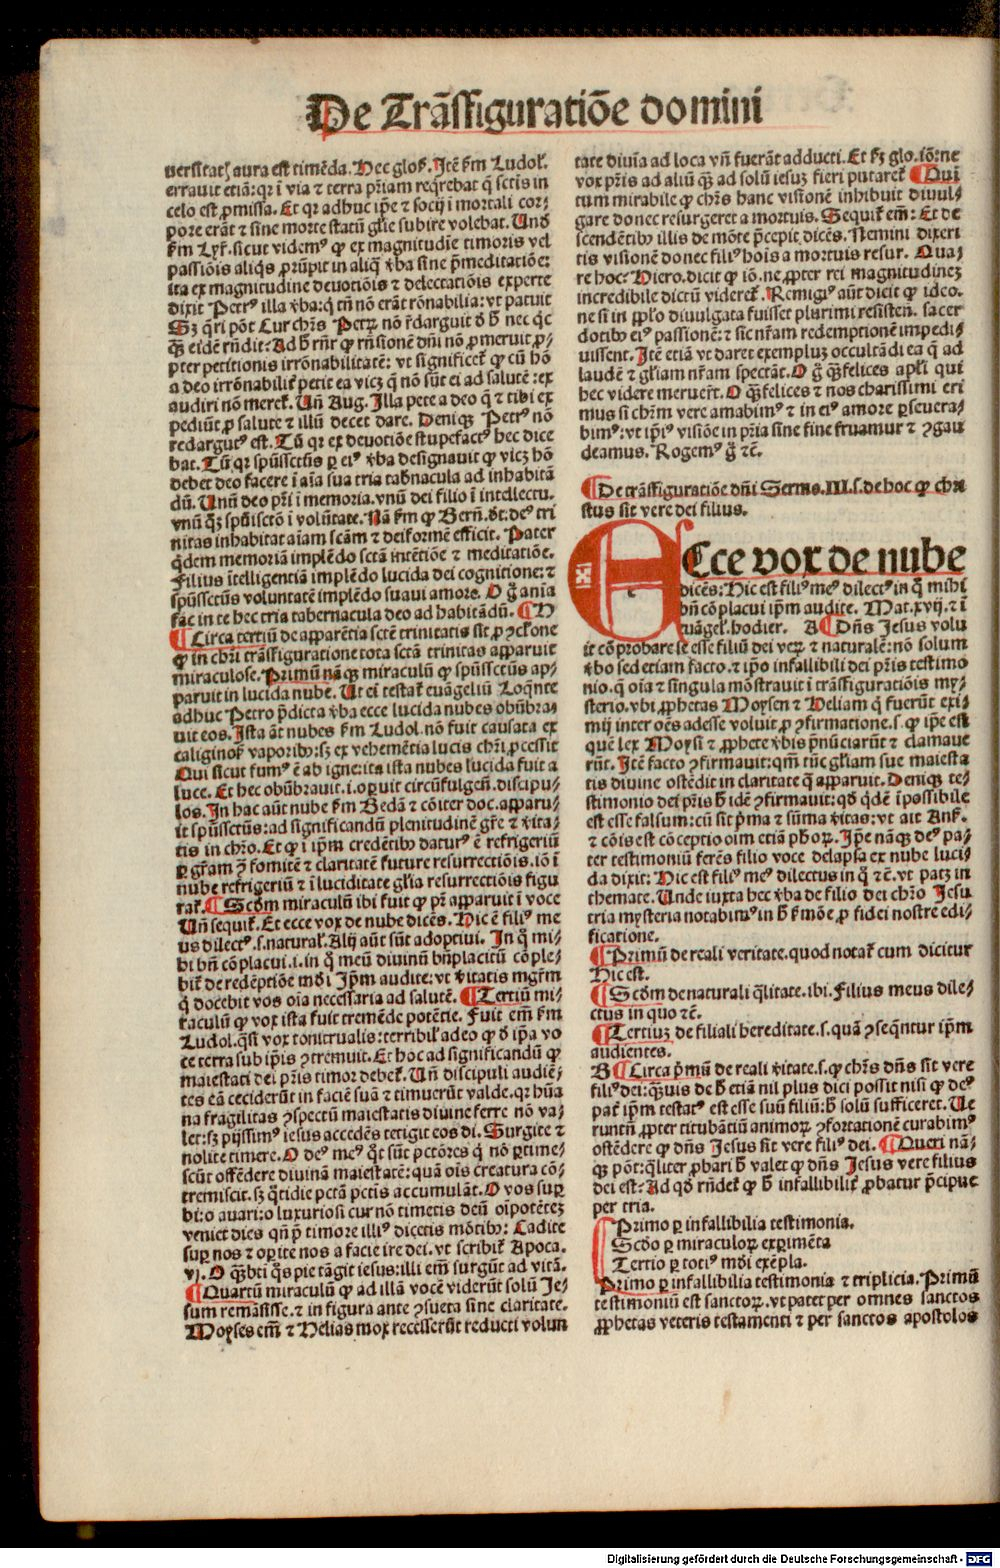 De Trãsfiguratiõe domini
uersitatis aura est timẽda. Hec glos. Itẽ ẜm Ludol.
errauit etiã: qꝛ ĩ via ⁊ terra pr̃iam reqrebat q̃ sctis in
celo est ꝓmissa. Et qꝛ adhuc ip̃e ⁊ socij ĩ mortali cor⸗
pore erãt ⁊ sine morte statũ gl̃ie subire volebat. Und̃
ẜm Lyr̃. sicut videmꝰ ꝙ ex magnitudĩe timoris vel
passiõis aliq̃s ꝓrũpit in aliq̃ v̾ba sine p̃meditatiõe:
ita ex magnitudine deuotiõis ⁊ delectatiõis experte
dixit Petrꝰ illa v̾ba: q̃ tñ nõ erãt rõnabilia: vt patuit
Sꝫ q̃ri põt Cur chr̃s Petꝝ nõ r̃darguit ð h̃ nec q̃c
q̃ꝫ eidẽ rñdit: Ad h̃ rñr̃ ꝙ rñsionẽ dñi nõ ꝓmeruit ꝓ⸗
pter petitionis irrõnabilitatẽ: vt significet̃ ꝙ cũ hõ
a deo irrõnabilit̃ petit ea vicꝫ q̃ nõ sũt ei ad salutẽ: ex
audiri nõ meret̃. Uñ Aug. Illa pete a deo q̃ ⁊ tibi ex
pediũt ꝓ salute ⁊ illũ decet dare. Deniqꝫ Petrꝰ nõ
redargutꝰ est. Tũ qꝛ ex deuotiõe stupefactꝰ hec dice
bat. Tũ qꝛ spũssctũs ꝑ eiꝰ v̾ba designauit ꝙ vicꝫ hõ
debet deo facere ĩ aĩa sua tria tabñacula ad inhabitã
dũ. Unũ deo pr̃i ĩ memoria. vnũ dei filio ĩ intellectu.
vnũ q̃ꝫ spũiscto ĩ volũtate. Nã ẜm ꝙ Berñ. ðt: deꝰ tri
nitas inhabitat aĩam scãm ⁊ deiformẽ efficit. Pater
q̃dem memoriã implẽdo sctã intẽtiõe ⁊ meditatiõe.
Filius ĩtelligentiã implẽdo lucida dei cognitione: ⁊
spũssctũs voluntatẽ implẽdo suaui amore. O g̃ aña
fac in te hec tria tabernacula deo ad habitãdũ. ¶ H
¶ Circa tertiũ de apparẽtia sctẽ trinitatis sit ꝓ ꝯclõne
ꝙ in chr̃i trãsfiguratione tota sctã trinitas apparuit
miraculose. Primũ nãqꝫ miraculũ ꝙ spũssctũs ap⸗
paruit in lucida nube. Ut ei testat̃ euãgeliũ Loq̃nte
adhuc Petro p̃dicta v̾ba ecce lucida nubes obũbra⸗
uit eos. Ista ãt nubes ẜm Ludol. nõ fuit causata ex
caliginoẜ vaporibꝰ: sꝫ ex vehemẽtia lucis chr̃i ꝓcessit
Qui sicut fumꝰ ẽ ab igne: ita ista nubes lucida fuit a
luce. Et hec obũbrauit. i. oꝑuit circũfulgeñ. discipu⸗
los. In hac aũt nube ẜm Bedã ⁊ cõiter doc. apparu⸗
it spũssctũs: ad significandũ plenitudinẽ gr̃e ⁊ v̾ita⸗
tis in chr̃o. Et ꝙ ĩ ip̃m credẽtibꝰ daturꝰ ẽ refrigeriũ
ꝑ gr̃am ꝯ̃ fomitẽ ⁊ claritatẽ future resurrectiõis. iõ ĩ
nube refrigeriũ ⁊ ĩ luciditate gl̃ia resurrectiõis figu
rat̃. ¶ Scðm miraculũ ibi fuit ꝙ pr̃ apparuit ĩ voce
Uñ sequit̃. Et ecce vox de nube dicẽs. Hic ẽ filiꝰ me
us dilectꝰ. s. natural̃. Alij aũt sũt adoptiui. In q̃ mi⸗
hi bñ cõplacui. i. in q̃ meũ diuinũ bñplacitũ cõple⸗
bit̃ de redẽptiõe mũdi Ip̃m audite: vt v̾itatis mgr̃m
q̃ docebit vos oĩa necessaria ad salutẽ. ¶ Tertiũ mi⸗
raculũ ꝙ vox ista fuit tremẽde potẽtie. Fuit em̃ ẜm
Ludol. q̃si vox tonitrualis: terribil̃ adeo ꝙ ð ip̃a vo
ce terra sub ip̃is ꝯtremuit. Et hoc ad significandũ ꝙ
maiestati dei pr̃is timor debet̃. Uñ discipuli audiẽ⸗
tes eã ceciderũt in faciẽ suã ⁊ timuerũt valde. qꝛ hũa
na fragilitas ꝯspectũ maiestatis diuine ferre nõ va⸗
let: sꝫ pijssimꝰ iesus accedẽs tetigit eos di. Surgite ⁊
nolite timere. O deꝰ meꝰ q̃t sũt pctõres q̃ nõ ꝑtime⸗
scũt offẽdere diuinã maiestatẽ: quã oĩs creatura cõ⸗
tremiscit. sꝫ q̃tidie pctã pctis accumulãt. O vos suꝑ
bi: o auari: o luxuriosi cur nõ timetis deũ oĩpotẽteꝫ
veniet dies qñ p̃ timore illiꝰ dicetis mõtibꝰ: Cadite
suꝑ nos ⁊ oꝑite nos a facie ire dei. vt scribit̃ Apoca.
vj. O q̃ꝫbti q̃s pie tãgit iesus: illi em̃ surgũt ad vitã.
¶ Quartũ miraculũ ꝙ ad illã vocẽ viderũt solũ Je⸗
sum remãsisse. ⁊ in figura ante ꝯsueta sine claritate.
Moyses em̃ ⁊ Helias mox recesserũt reducti volun
tate diuĩa ad loca vñ fuerãt adducti. Et ẜꝫ glo. iõ: ne
vox pr̃is ad aliũ q̃ꝫ ad solũ iesuꝫ fieri putaret̃ ¶ Qui
tum mirabile ꝙ chr̃s hanc visionẽ inhibuit diuul⸗
gare donec resurgeret a mortuis. Sequit̃ em̃: Et de
scendẽtibꝰ illis de mõte p̃cepit dicẽs. Nemini dixeri
tis visionẽ donec filiꝰ hoĩs a mortuis resur. Qua⸗
re hoc: Hiero. dicit ꝙ iõ. ne ꝓpter rei magnitudineꝫ
incredibile dictũ videret̃. Remigiꝰ aũt dicit ꝙ ideo.
ne si in pp̃lo diuulgata fuisset plurimi resisten. sacer
dotibꝰ eiꝰ passionẽ: ⁊ sic nr̃am redemptionẽ impedi⸗
uissent. Itẽ etiã vt daret exempluꝫ occultãdi ea q̃ ad
laudẽ ⁊ gl̃iam nr̃am spectãt. O g̃ q̃ꝫfelices apl̃i qui
hec videre meruer̃t. O q̃ꝫfelices ⁊ nos charissimi eri
mus si chr̃m vere amabimꝰ ⁊ in eiꝰ amore ꝑseuera⸗
bimꝰ: vt ip̃iꝰ visiõe in pr̃ia sine fine fruamur ⁊ ꝯgau
deamus. Rogemꝰ g̃ ⁊c̃.
¶ De trãsfiguratiõe dñi Sermo. III. s. de hoc ꝙ chri
stus sit vere dei filius.
ECce vox de nube
dicẽs: Hic est filiꝰ meꝰ dilectꝰ in q̃ mihi
bñ cõplacui ip̃m audite. Mat. xvij. ⁊ ĩ
euãgel. hodier. A ¶ Dñs Jesus volu
it cõprobare se esse filiũ dei veꝝ ⁊ naturalẽ: nõ solum
v̾bo sed etiam facto. ⁊ ip̃o infallibili dei pr̃is testimo
nio. q̃ oĩa ⁊ singula mõstrauit ĩ trãsfiguratiõis my⸗
sterio. vbi ꝓphetas Moysen ⁊ Heliam q̃ fuerũt exi⸗
mij inter oẽs adesse voluit ꝓ ꝯfirmatione. s. ꝙ ip̃e est
quẽ lex Moysi ⁊ ꝓphete v̾bis p̃nũciarũt ⁊ clamaue
rũt. Itẽ facto ꝯfirmauit: qm̃ tũc gl̃iam sue maiesta
tis diuine ostẽdit in claritate q̃ apparuit. Deniqꝫ te⸗
stimonio dei pr̃is h̃ idẽ ꝯfirmauit: qð q̃dẽ ĩpossibile
est esse falsum: cũ sit p̃ma ⁊ sũma v̾itas: vt ait Ans.
⁊ cõis est cõceptio oim etiã ph̃oꝝ. Ip̃e nãqꝫ deꝰ pa⸗
ter testimoniũ ferẽs filio voce delapsa ex nube luci⸗
da dixit: Hic est filiꝰ meꝰ dilectus in q̃ ⁊c̃. vt patꝫ in
themate. Unde iuxta hec v̾ba de filio dei chr̃o Jesu
tria mysteria notabimꝰ in h̃ ẜmõe ꝓ fidei nostre edi⸗
ficatione.
¶ Primũ de reali veritate. quod notat̃ cum dicitur
Hic est.
¶ Scðm de naturali q̃litate. ibi. Filius meus dile⸗
ctus in quo ⁊c̃.
¶ Tertiuꝫ de filiali hereditate. s. quã ꝯseq̃ntur ip̃m
audientes.
B ¶ Circa p̃mũ de reali v̾itate. s. ꝙ chr̃s dñs sit vere
filiꝰ dei: q̃uis de h̃ etiã nil plus dici possit nisi ꝙ deꝰ
pat̃ ip̃m testatꝰ est esse suũ filiũ: h̃ solũ sufficeret. Ue
runtñ ꝓpter titubãtiũ animoꝝ ꝯfortationẽ curabimꝰ
ostẽdere ꝙ dñs Jesus sit vere filiꝰ dei. ¶ Queri nã⸗
qꝫ põt: q̃liter ꝓbari h̃ valet ꝙ dñs Jesus vere filius
dei est: Ad qð rñdet̃ ꝙ h̃ infallibilit̃ ꝓbatur p̃cipue
per tria.
Primo ꝑ infallibilia testimonia.
Scðo ꝑ miraculoꝝ exꝑimẽta
Tertio ꝑ totiꝰ mũdi exẽpla.
Primo ꝑ infallibilia testimonia ⁊ triplicia. Primũ
testimoniũ est sanctoꝝ. vt patet per omnes sanctos
ꝓphetas veteris testamenti ⁊ per sanctos apostolos
Digitalisierung gefördert durch die Deutsche Forschungsgemeinschaft - DFG